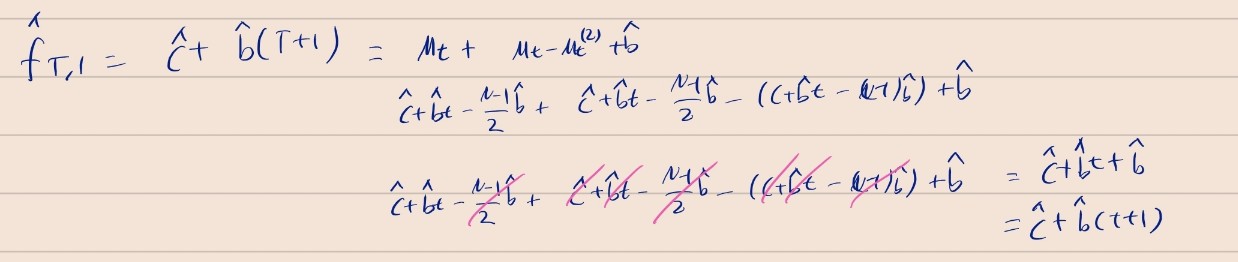 f̂_{T,1} = ĉ + b̂(T+1) = M_t + M_t - M_t^{(2)} + b̂
ĉ + b̂t - \frac{N-1}{2}b̂ + ĉ + b̂t - \frac{N-1}{2}b̂ - (ĉ + b̂t - (N-1)b̂) + b̂
ĉ + b̂t - \frac{N-1}{2}b̂ + ĉ + b̂t - \frac{N-1}{2}b̂ - (ĉ + b̂t - (N-1)b̂) + b̂ = ĉ + b̂t + b̂
= ĉ + b̂(t+1)